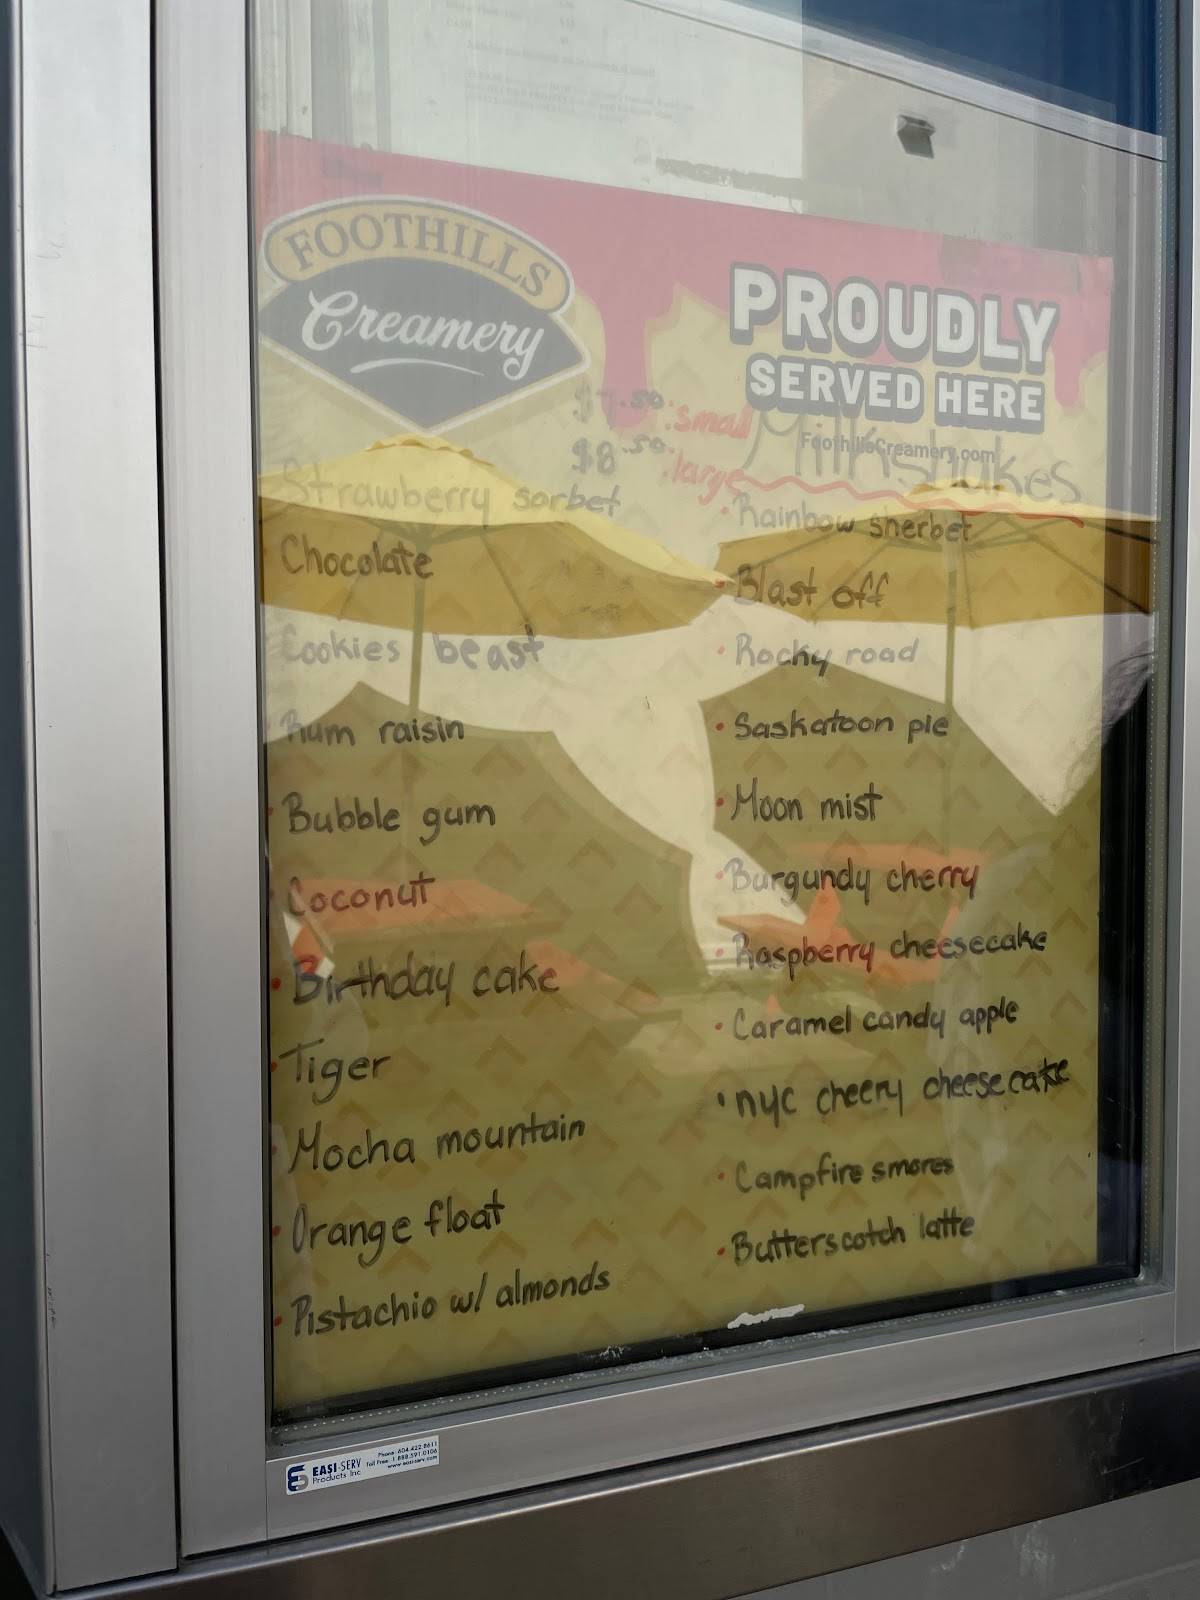 FOOTHILLS
Creamery
PROUDLY
SERVED HERE
FoothillsCreamery.com
$7.50: small
$8.50: large
Milkshakes
Strawberry sorbet
Chocolate
Cookies beast
Rum raisin
Bubble gum
Coconut
• Birthday cake
• Tiger
• Mocha mountain
• Orange float
• Pistachio w/ almonds
• Rainbow sherbet
• Blast off
• Rocky road
• Saskatoon pie
• Moon mist
• Burgundy cherry
• Raspberry cheesecake
• Caramel candy apple
• nyc cheery cheesecake
• Campfire smores
• Butterscotch latte
EASI-SERV
Products Inc
Phone: 604.422.8611
Toll Free: 1.888.591.0106
www.easi-serv.com